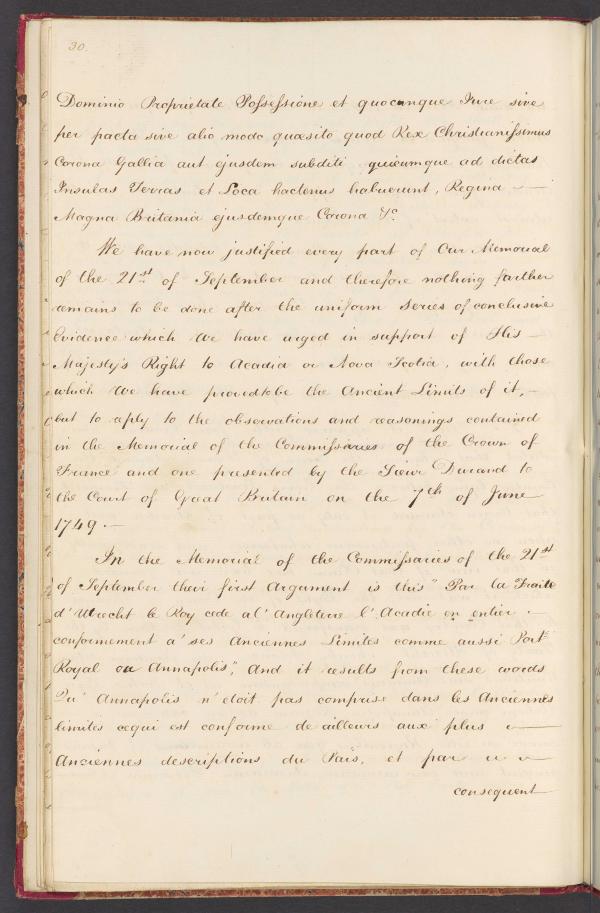 30.
Dominio Proprietate Possessione et quocunque Jure sive
per pacta sive alio modo quæsito quod Rex Christianissimus
Corona Gallia aut ejusdem subditi quicumque ad dictas
Insulas Terras et Loca hactenus habuerunt, Regina —
Magna Britania ejusdemque Corona &c.
We have now justified every part of Our Memorial
of the 21st of September and therefore nothing farther
remains to be done after the uniform Series of conclusive
Evidence which We have urged in support of His —
Majesty's Right to Acadia or Nova Scotia, with those
which We have proved to be the Ancient Limits of it, —
but to aply to the observations and reasonings contained
in the Memorial of the Commissaries of the Crown of
France and one presented by the Sieur Durand to
the Court of Great Britain on the 7th of June
1749. —
In the Memorial of the Commissaries of the 21st
of September their first Argument is this " Par la Traite
d'Utrecht le Roy cede a l'Angleterre l'Acadie en entier —
conformement a' ses Anciennes Limites comme aussi Port
Royal ou Annapolis", And it results from these words
Qu' Annapolis n'etoit pas comprise dans les Anciennes
limites cequi est conforme de ailleurs aux plus —
Anciennes descriptions du Pais, et par
consequent